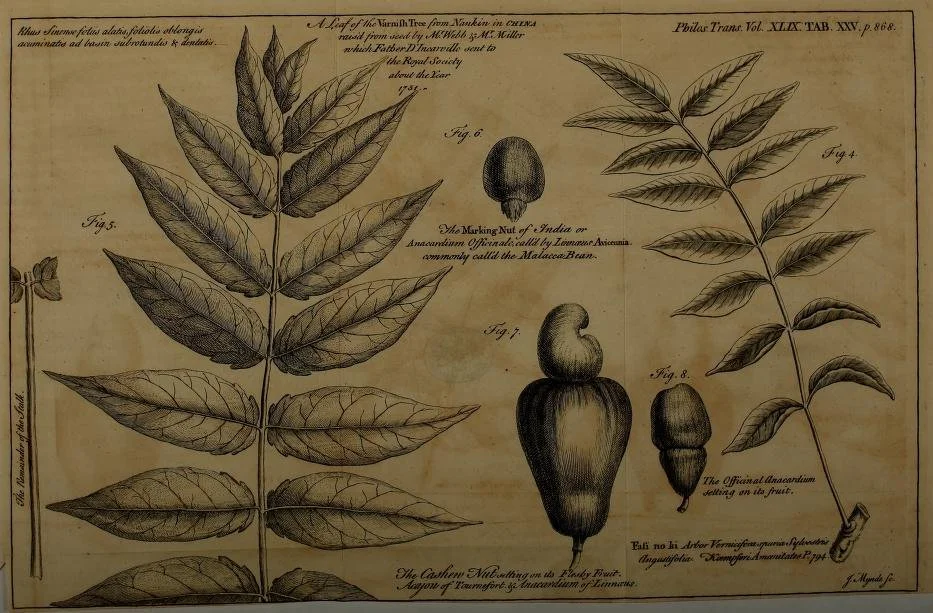 Rhus Sinense folus alatis, foliolis oblongis
acuminatis ad basin subrotundis & dentatis.
A Leaf of the Varnish Tree from Nankin in CHINA
rais'd from seed by Mr. Webb & Mr. Miller
which Father D'Incarville sent to
the Royal Society
about the Year
1751.
Philos Trans. Vol. XLIX. TAB. XXV. p. 868.
Fig. 6.
Fig. 4.
Fig. 5.
The Marking Nut of India or
Anacardium Officinale, call'd by Linnæus Avicennia.
commonly call'd the Malacca-Bean.
Fig. 7.
Fig. 8.
The Remainder of the Stalk.
The Officinal Anacardium
setting on its fruit.
Fasi no ki Arbor Vernicifera spuria Sylvestris
Angustifolia. Kæmpferi Amœnitates P. 794.
The Cashew Nut setting on its Fleshy Fruit.
Acajou of Tournefort & Anacardium of Linnæus.
J. Mynde sc.